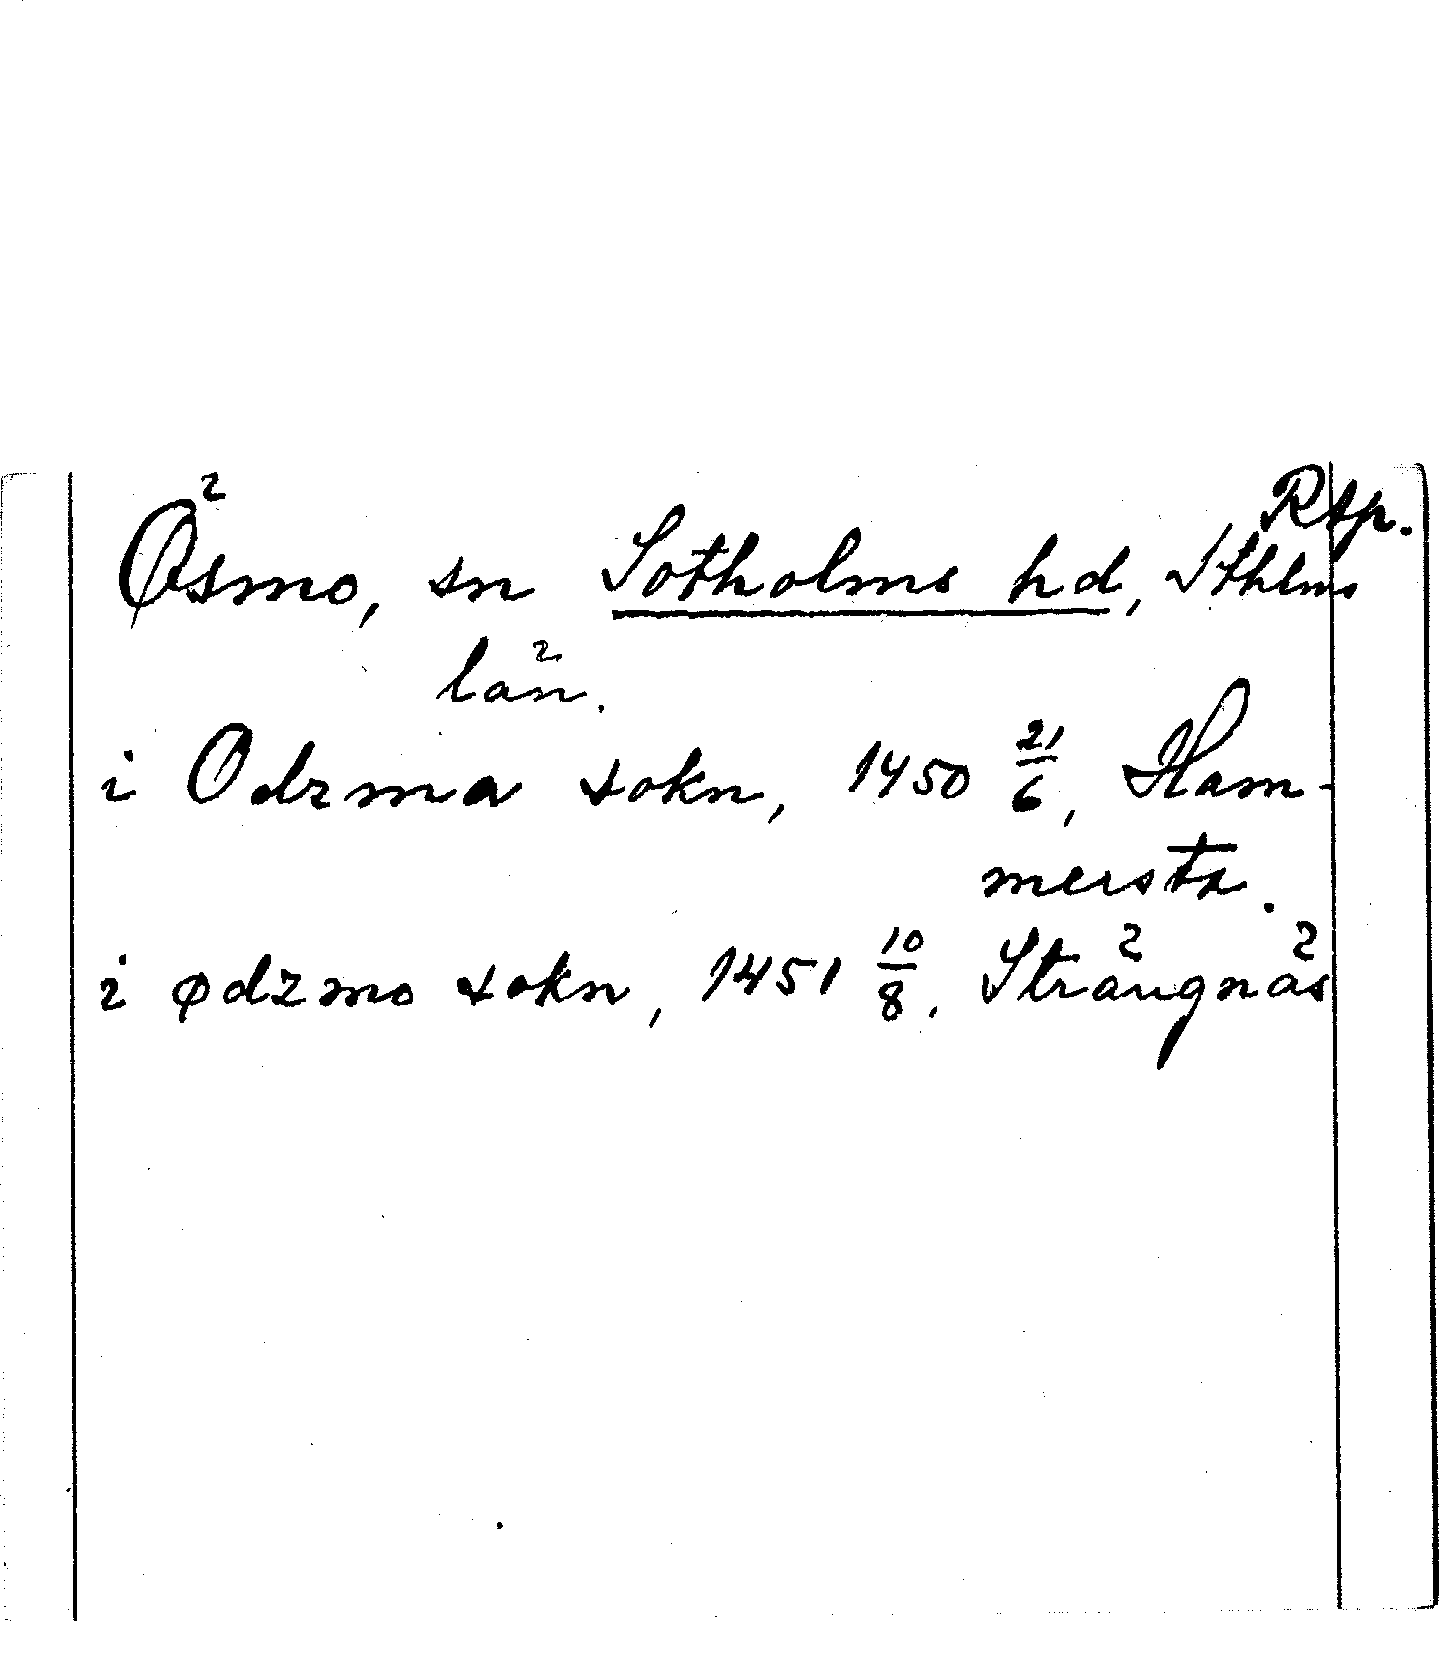 Rtp.
Ösmo, sn Sotholms hd, Sthlms
län.
i Odzma sokn, 1450 21/6, Ham-
mersta.
i ødzmo sokn, 1451 10/8, Strängnäs